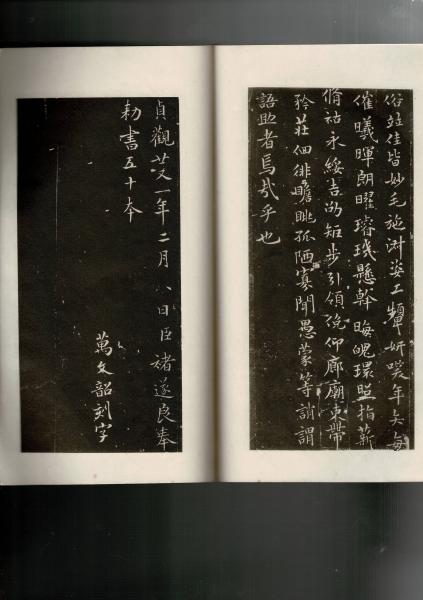 俗竝佳皆妙毛施淑姿工顰妍咲年矢每
催曦暉朗曜璿璣懸斡晦魄環照指薪
脩祜永綏吉劭矩步引領俛仰廊廟束帶
矜莊佪徘瞻眺孤陋寡聞愚蒙等誚謂
語助者焉哉乎也
貞觀廿一年二月八日臣褚遂良奉
勑書五十本
萬文韶刻字